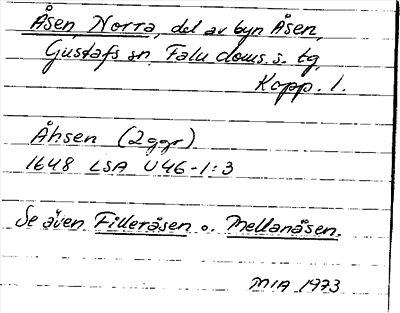 Åsen, Norra, del av byn Åsen,
Gustafs sn, Falu doms. s. tg,
Kopp. l.
Åhsen (2 ggr)
1648 LSA U46-1:3
Se även Filleråsen o. Mellanåsen.
MIA 1973